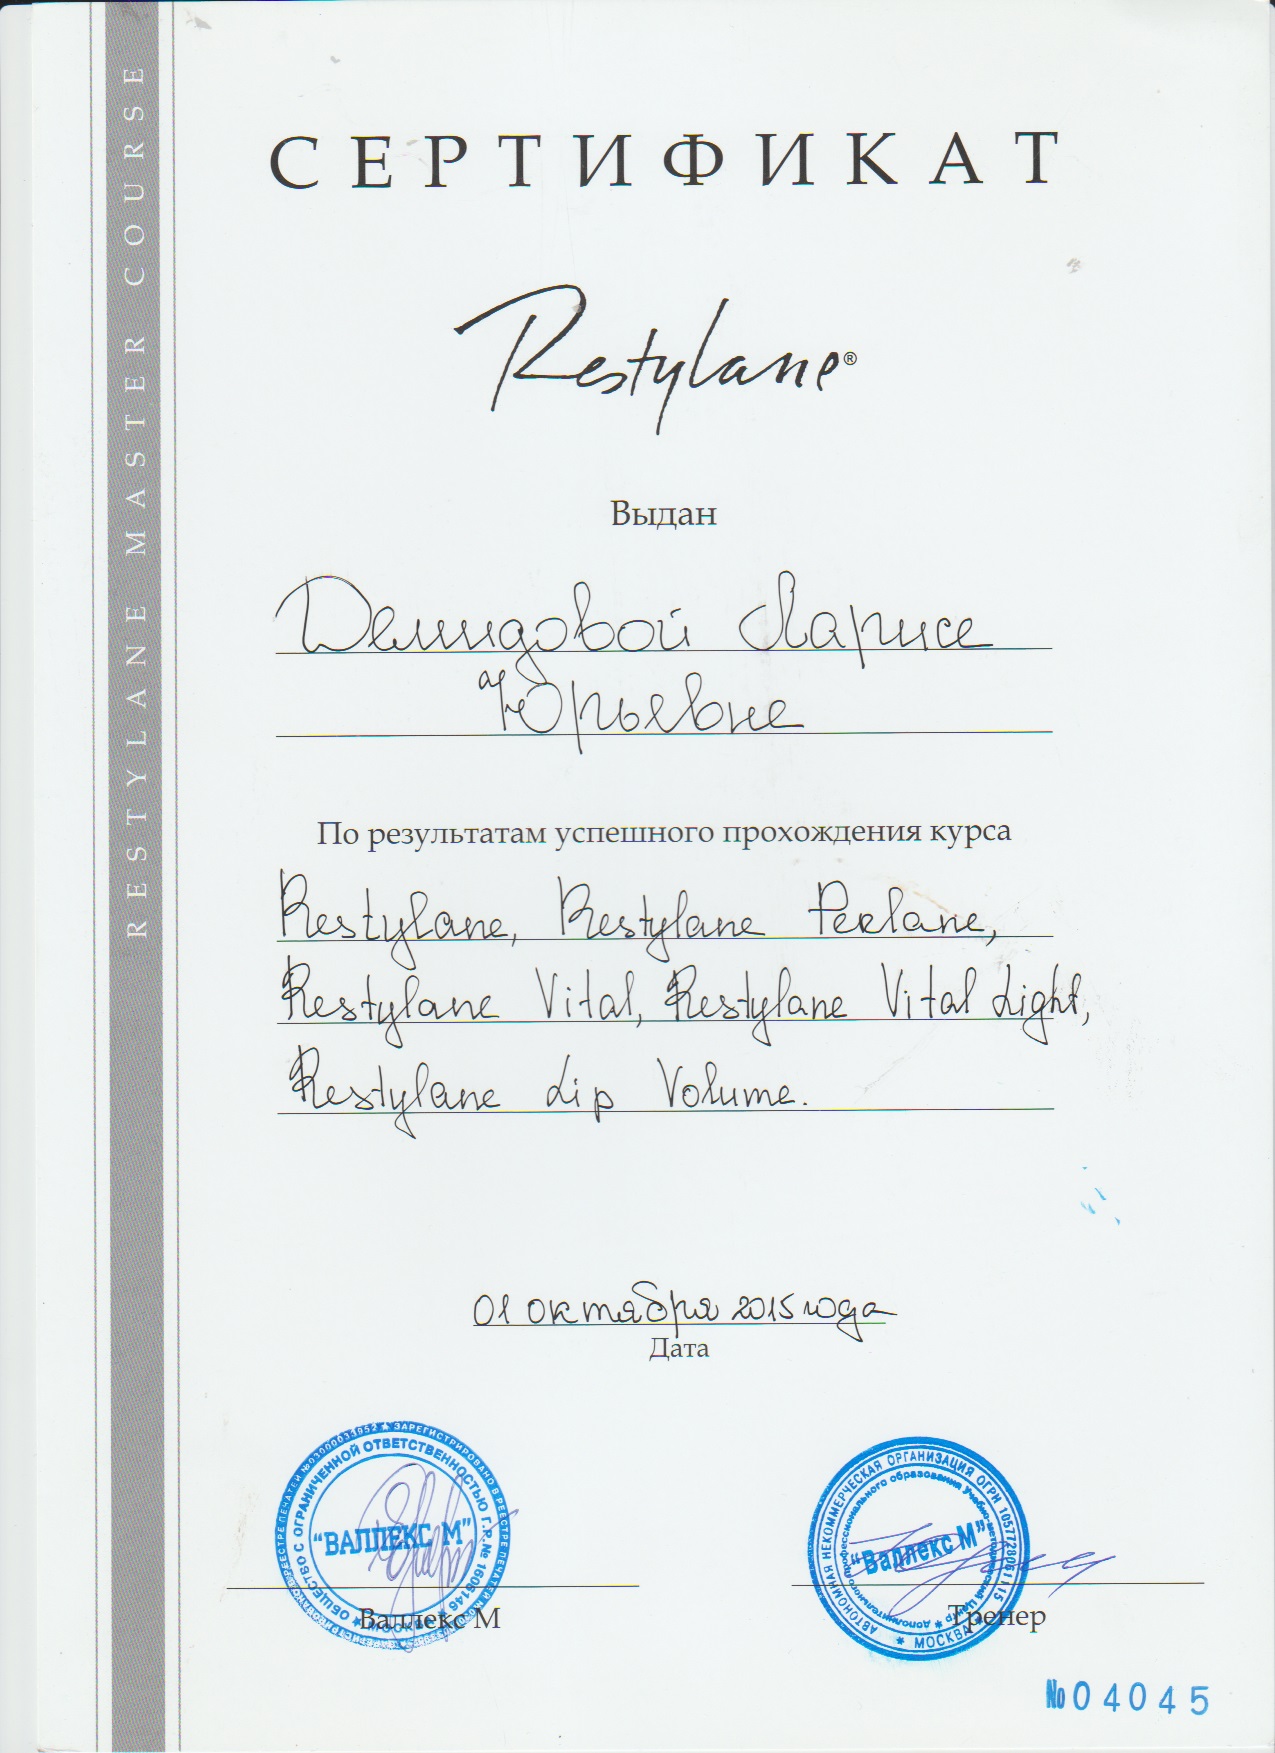 RESTYLANE MASTER COURSE
СЕРТИФИКАТ
Restylane®
Выдан
Демидовой Ларисе
Юрьевне
По результатам успешного прохождения курса
Restylane, Restylane Perlane,
Restylane Vital, Restylane Vital Light,
Restylane Lip Volume.
01 октября 2015 года
Дата
ЗАРЕГИСТРИРОВАНО В РЕЕСТРЕ ПЕЧАТЕЙ
ОБЩЕСТВО С ОГРАНИЧЕННОЙ ОТВЕТСТВЕННОСТЬЮ Г.Р.№ 1606146
МОСКВА
"ВАЛЛЕКС М"
Валлекс М
АВТОНОМНАЯ НЕКОММЕРЧЕСКАЯ ОРГАНИЗАЦИЯ ОГРН
дополнительного профессионального образования Учебно-методический центр
"Валлекс М"
МОСКВА
Тренер
№04045